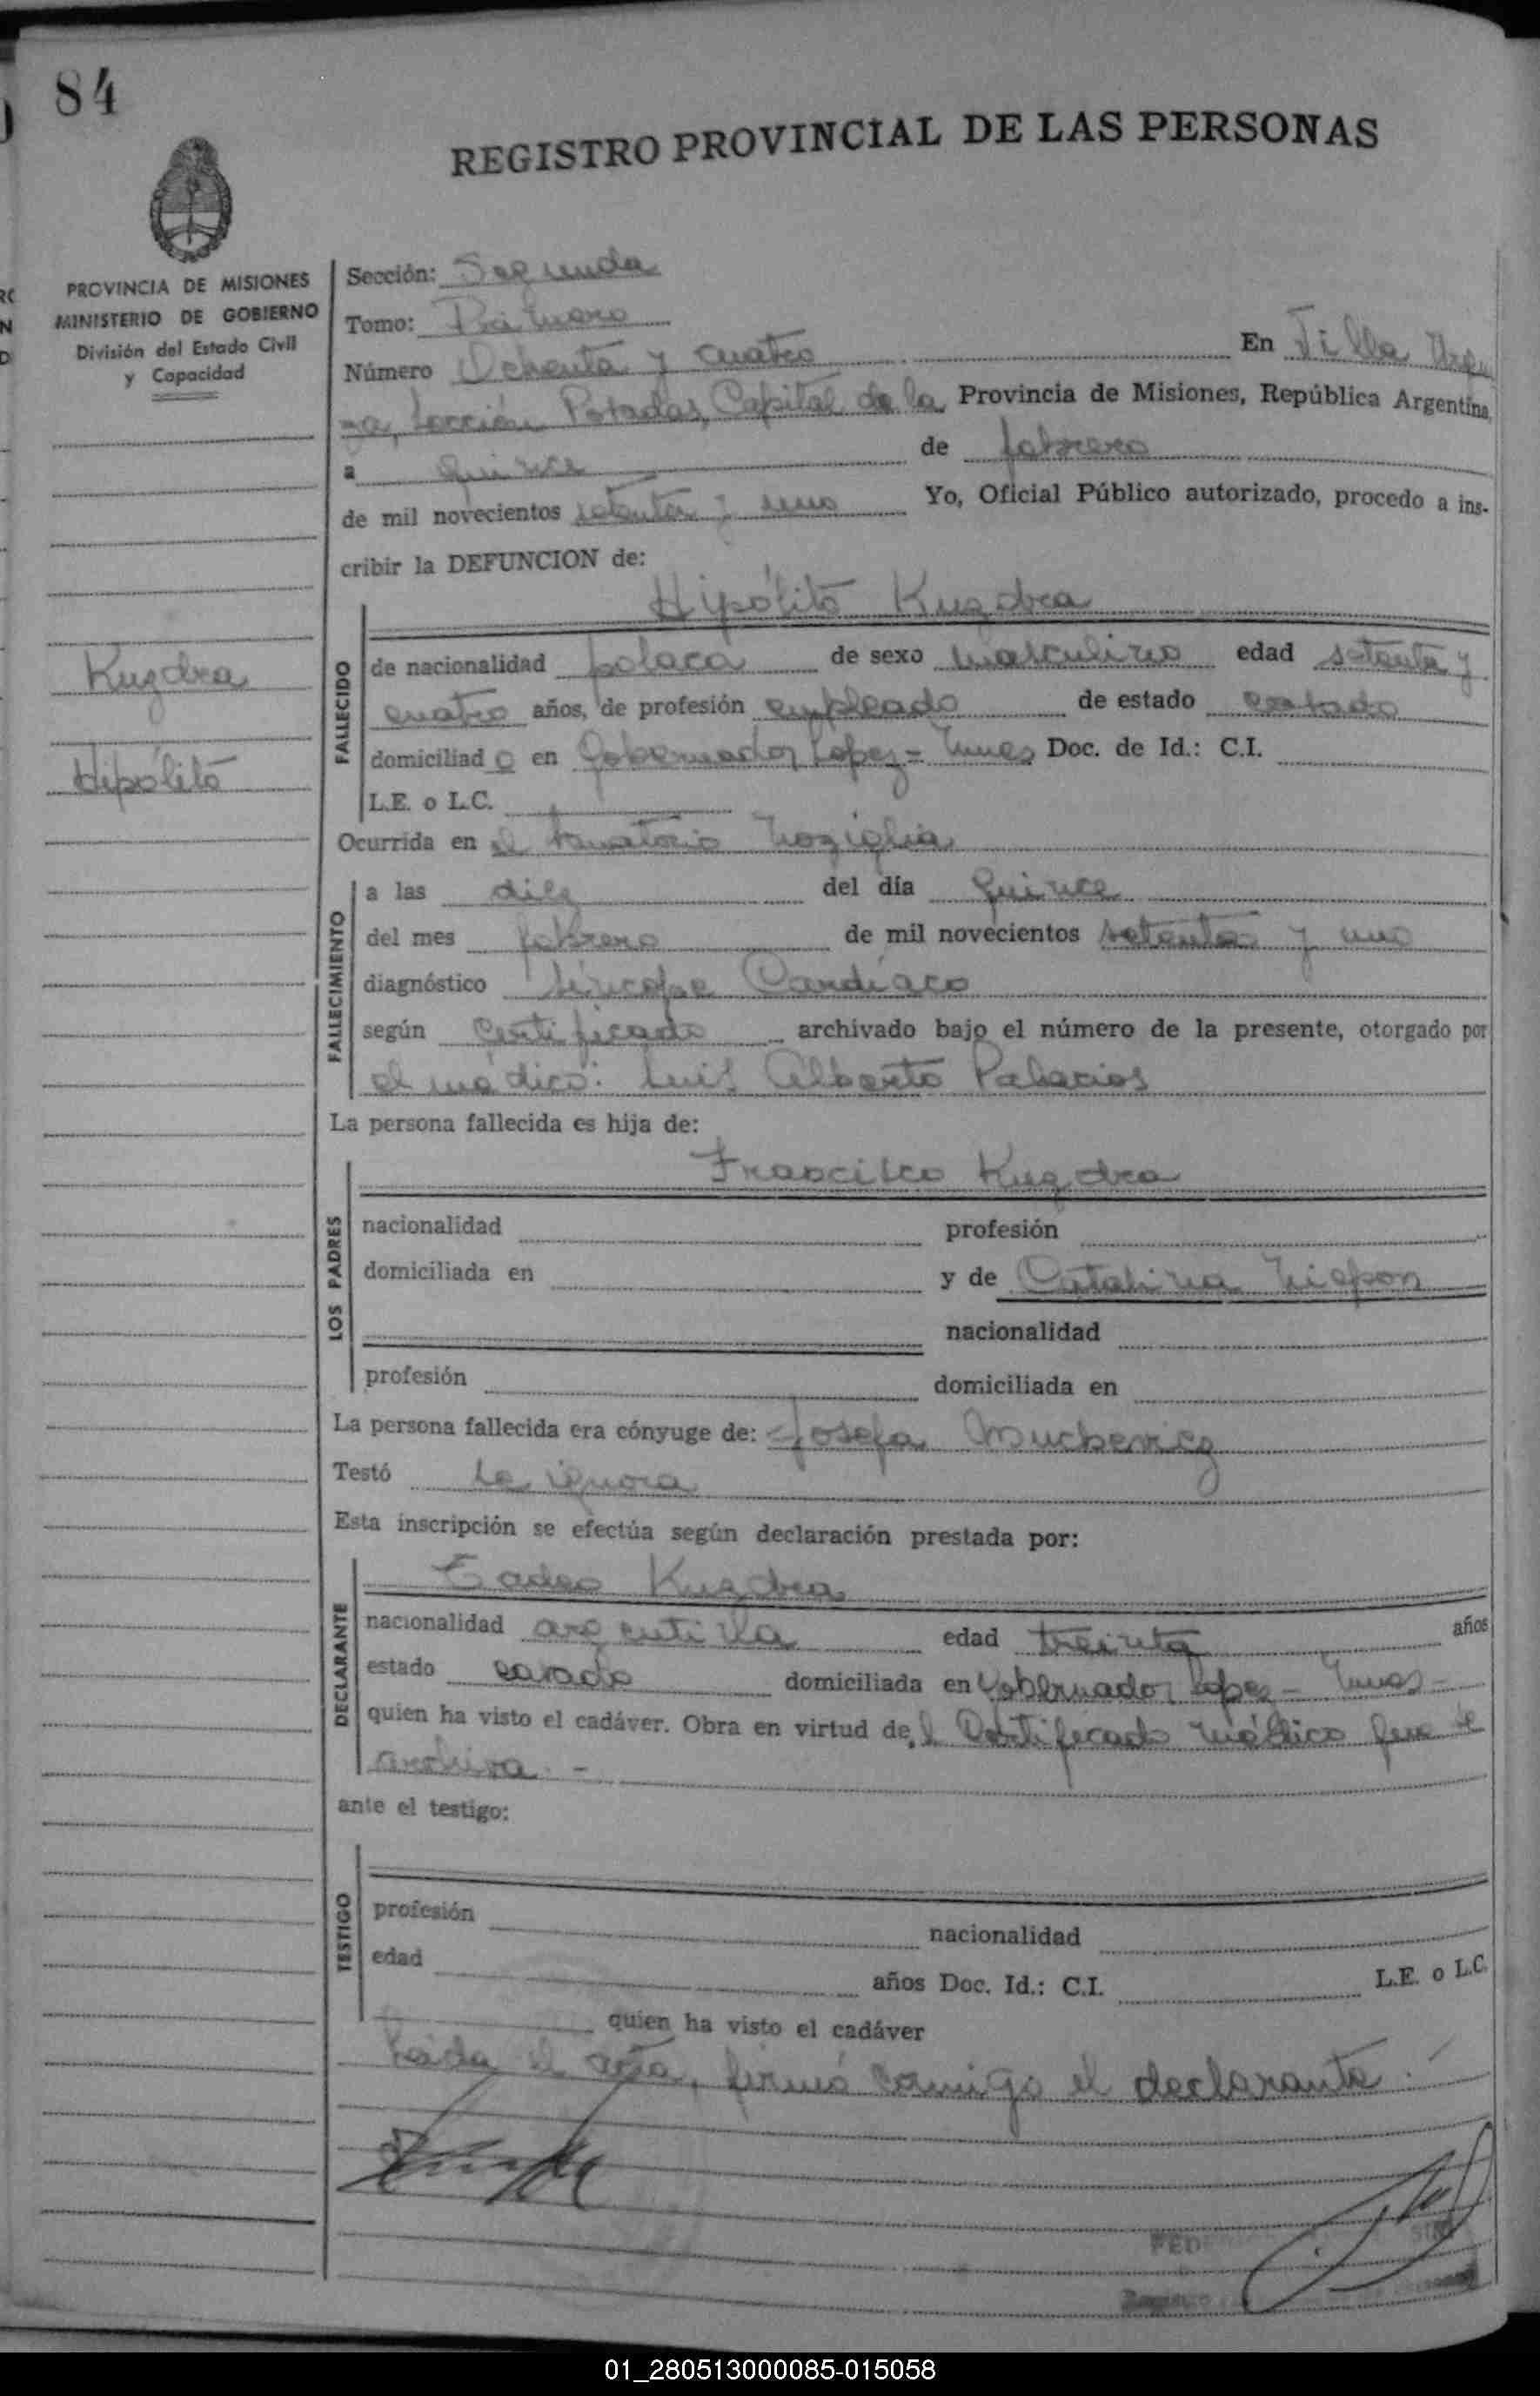 84
REGISTRO PROVINCIAL DE LAS PERSONAS
PROVINCIA DE MISIONES
MINISTERIO DE GOBIERNO
División del Estado Civil
y Capacidad
Kuzdra
Hipólito
Sección: Segunda
Tomo: Primero
Número Ochenta y cuatro En Villa Urqui
za, Sección Posadas, Capital de la Provincia de Misiones, República Argentina,
a quince de febrero
de mil novecientos setenta y uno Yo, Oficial Público autorizado, procedo a ins-
cribir la DEFUNCION de:
Hipólito Kuzdra
FALLECIDO
de nacionalidad polaca de sexo masculino edad setenta y
cuatro años, de profesión empleado de estado casado
domiciliado en Gobernador Lopez - Mnes Doc. de Id.: C.I.
L.E. o L.C.
Ocurrida en el Sanatorio
FALLECIMIENTO
a las diez del día quince
del mes febrero de mil novecientos setenta y uno
diagnóstico Síncope Cardíaco
según Certificado archivado bajo el número de la presente, otorgado por
el médico: Luis Alberto Palacios
La persona fallecida es hija de:
LOS PADRES
Francisco Kuzdra
nacionalidad profesión
domiciliada en y de Catalina
nacionalidad
profesión domiciliada en
La persona fallecida era cónyuge de: Josefa
Testó se ignora
Esta inscripción se efectúa según declaración prestada por:
DECLARANTE
Tadeo Kuzdra
nacionalidad argentina edad treinta años
estado casado domiciliada en Gobernador Lopez - Mnes -
quien ha visto el cadáver. Obra en virtud del Certificado médico que se
archiva. -
ante el testigo:
TESTIGO
profesión nacionalidad
edad años Doc. Id.: C.I. L.E. o L.C.
quien ha visto el cadáver
Leída el acta, firmó conmigo el declarante.
01_280513000085-015058